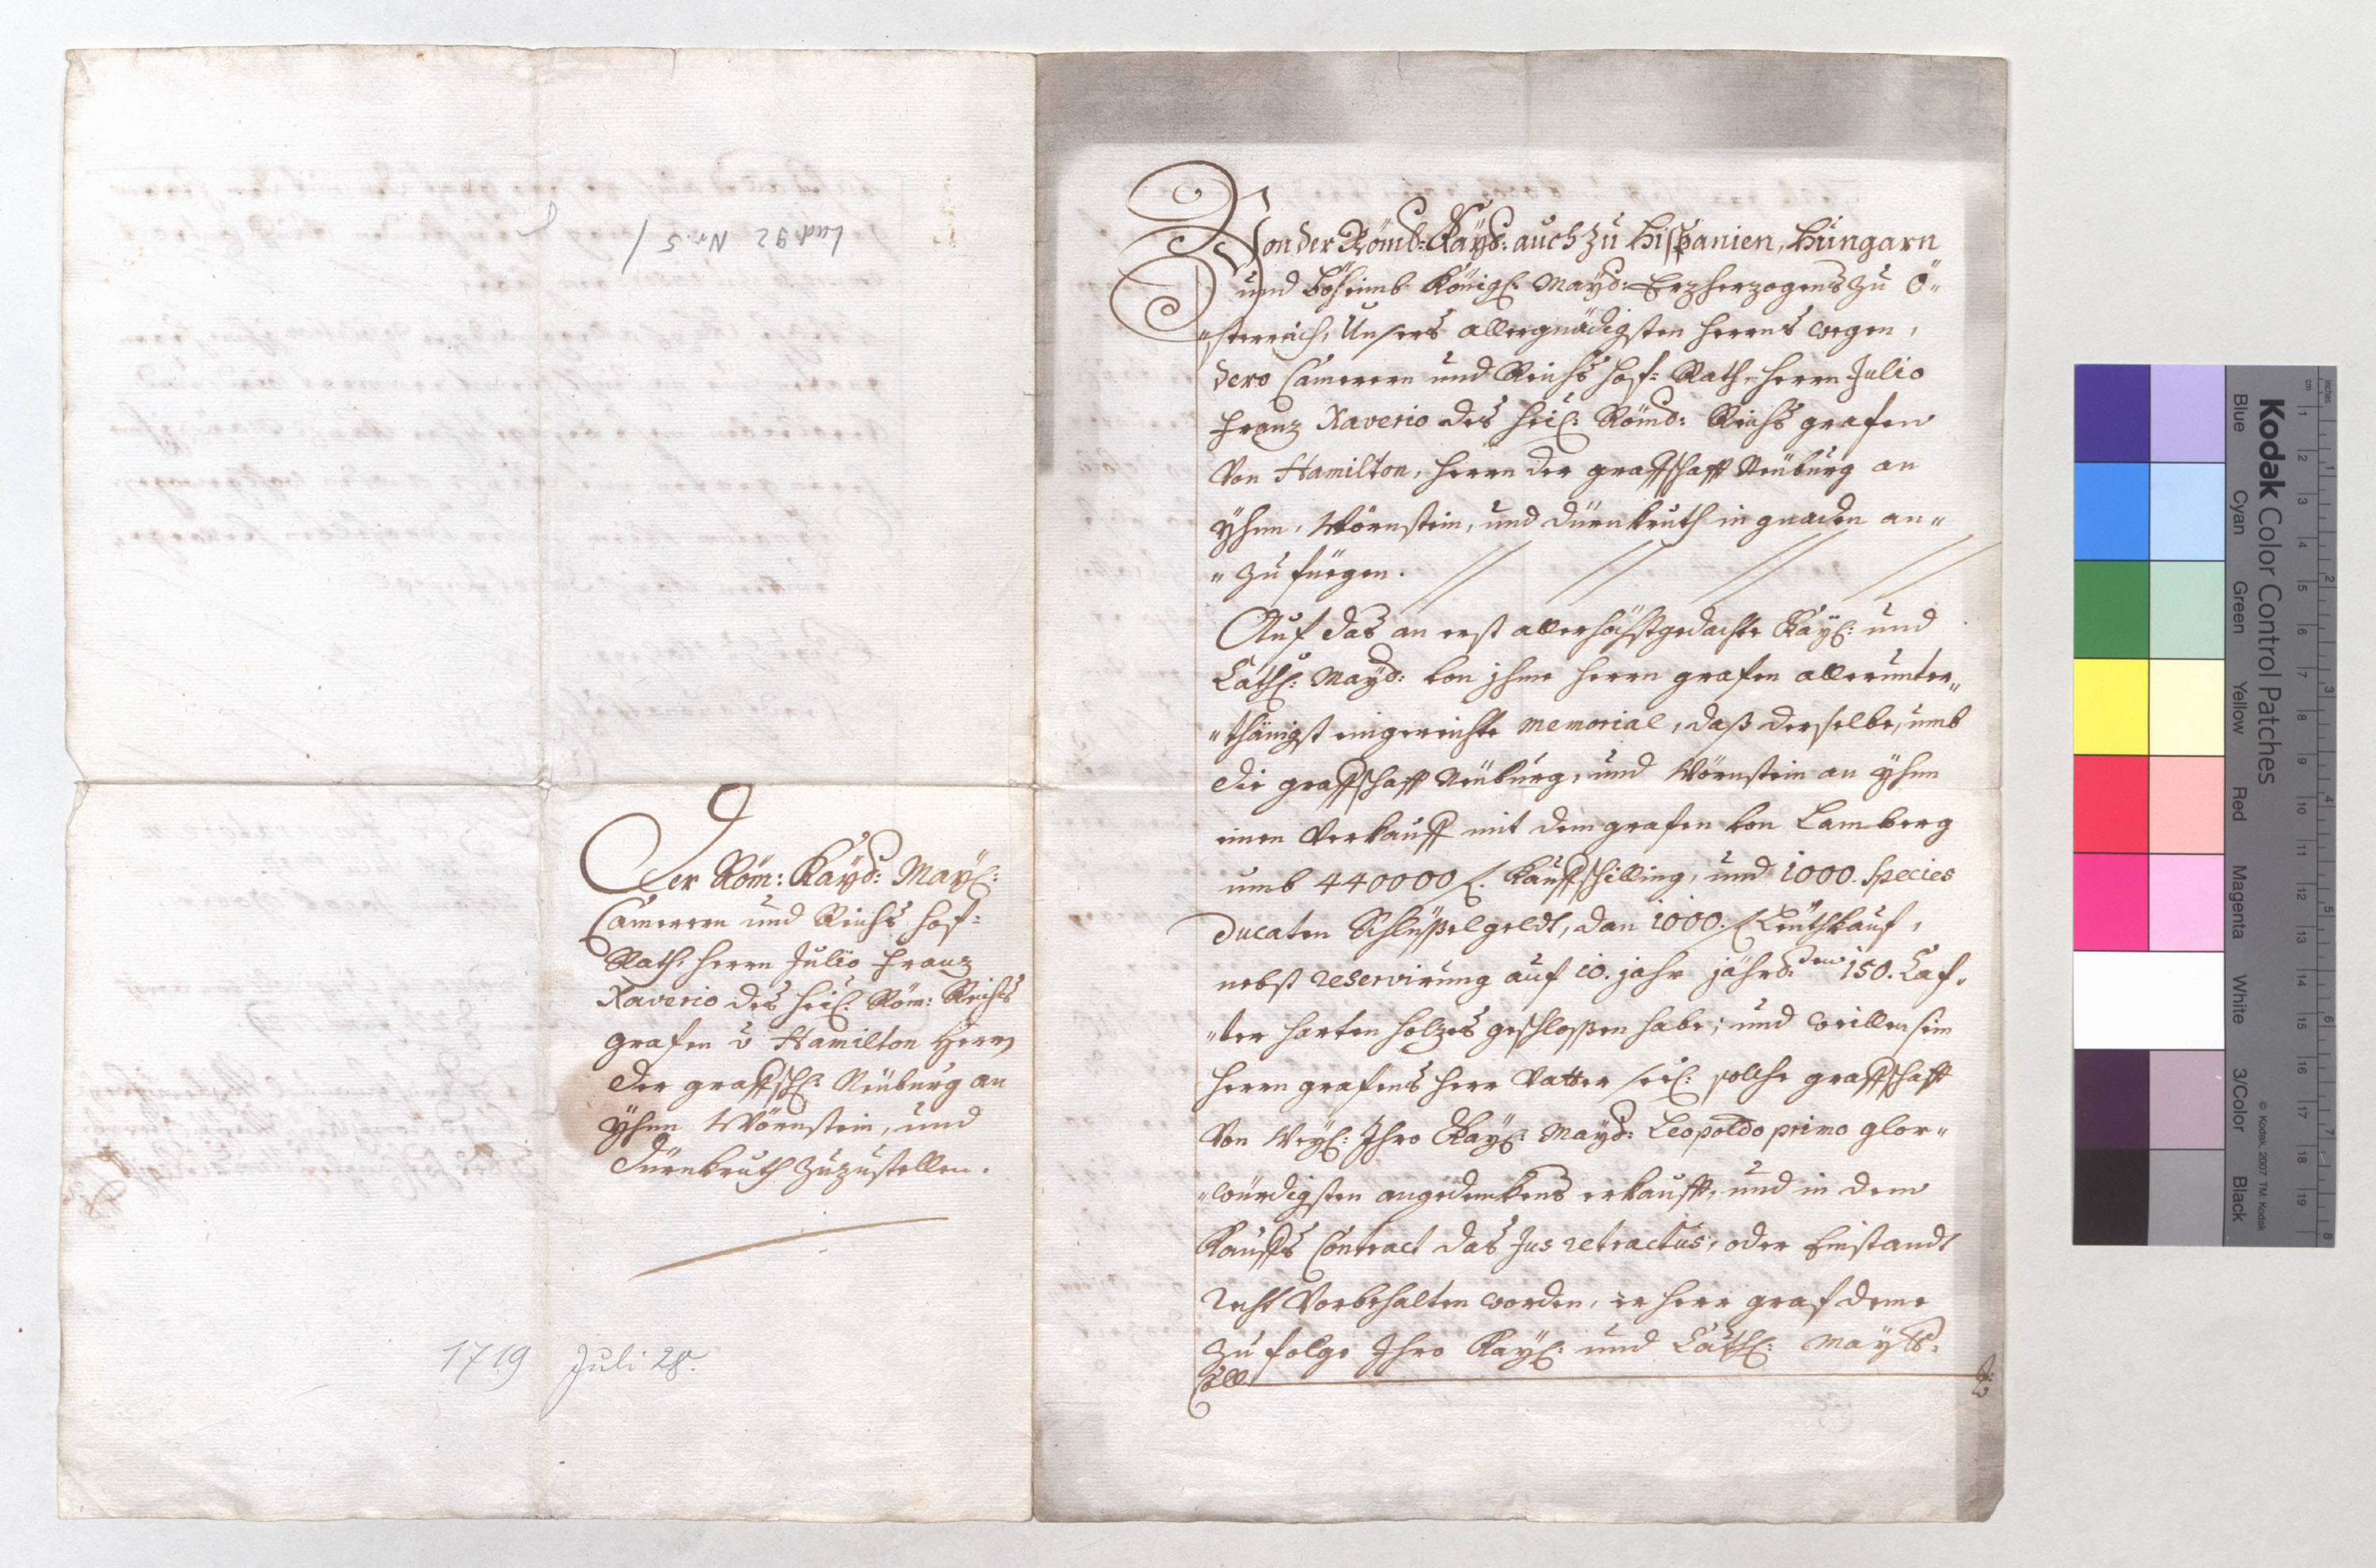 Lad. 92 Nr. 5
Der Röm: Kayß: May:
Camerern und Reichs hof-
Rath, herrn Julio Franz
Xaverio des heil: Röm: Reichs
grafen v Hamilton Herrn
der graffsch: Neüburg an
Yhnn Wörnstein, und
Dürnkruth zuzustellen.
1719 Juli 28.
Von der Römb: Kayß: auch zu Hispanien, Hungarn
und Böheimb Königl: Mayß: Erzherzogens zu Ö"
"sterreich, Unsers allergnädigsten herrns wegen,
dero Camerern und Reichs hof= Rath, herrn Julio
Franz Xaverio des heil: Römß: Reichs grafen
Von Hamilton, herrn der graffschafft Neüburg an
Yhnn, Wörnstein, und Dürnkruth in gnaden an"
"zufüegen.
Auf das an erst allerhöchstgedachte Kayl: und
Cathl: Mayß: von jhme herrn grafen allerunter"
"thänigst eingereichte memorial, daß derselbe, umb
die graffschafft Neüburg, und Wörnstein an Yhnn
einen Verkauff mit dem grafen von Lamberg
umb 440000 f. Kauffschilling, und 1000. Species
Ducaten Schlüßelgeldt, dan 1000. f Leüthkauf,
nebst reservirung auf 10. jahr jährl: 150. Claf"
"ter harten holzes geschloßen habe; und weillen sein
herrn grafens herr Vatter seel: solche graffschafft
Von Weyl: Ihro Kayl: Mayß: Leopoldo primo glor"
"würdigsten angedenkens erkaufft, und in dem
Kauffs Contract das Jus retractus, oder Einstandt
recht Vorbehalten worden, er herr graf deme
zu folge Ihro Kayl: und Cathl: Mayß: